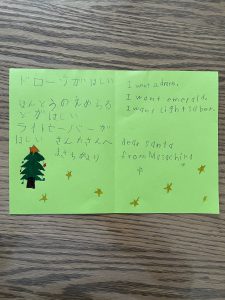 ドローンがほしい
ほんとうのえめらる
どがほしい
ライトセーバーが
ほしい さんたさんへ
まさちかより
I want a drone.
I want emerald.
I want lightsaber.
dear santa
from Masachika